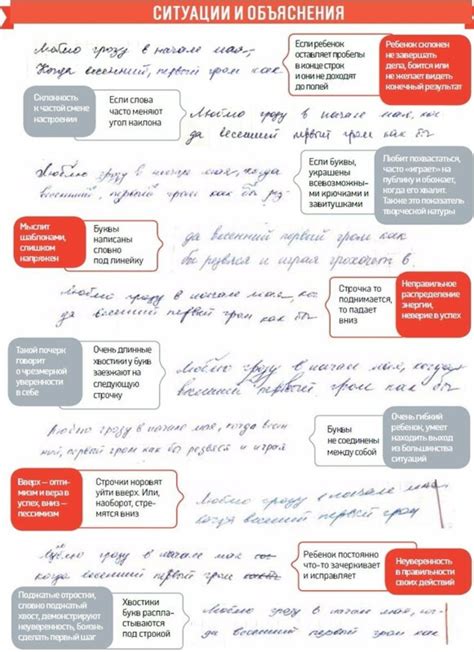 СИТУАЦИИ И ОБЪЯСНЕНИЯ
Люблю грозу в начале мая,
Когда весенний, первый гром как
Если ребенок
оставляет пробелы
в конце строк
и они не доходят
до полей
Ребенок склонен
не завершать
дела, боится или
не желает видеть
конечный результат
Склонность
к частой смене
настроения
Если слова
часто меняют
угол наклона
Люблю грозу в начале мая, ког-
да весенний первый гром как бы
Люблю грозу в начале мая, когда
весенний, первый гром как бы рез-
Если буквы,
украшены
всевозможны-
ми крючками и
завитушками
Любит похвастаться,
часто «играет» на
публику и обожает,
когда его хвалит.
Также это показатель
творческой натуры
Мыслит
шаблонами,
слишком
напряжен
Буквы
написаны
словно
под линейку
да весенний первый гром как
бы резвяся и играя грохочет в
Люблю грозу в начале мая, ког-
да весенний первый гром как бы
Строчка то
поднимается,
то падает
вниз
Неправильное
распределение
энергии,
неверие в успех
Такой почерк
говорит
о чрезмерной
уверенности
в себе
Очень длинные
хвостики у букв
заезжают на
следующую
строчку
Люблю грозу в начале мая, когда
весенний первый гром как бы
Люблю грозу в начале мая, когда весен
ний, первый гром как бы резвяся и играя
Буквы
не соединены
между собой
Очень гибкий
ребенок, умеет
находить выход
из большинства
ситуаций
Вверх — опти-
мизм и вера в
успех, вниз —
пессимизм
Строчки норовят
уйти вверх. Или,
наоборот, стре-
мятся вниз
Люблю грозу в начале мая
когда весенний первый гром
Люблю грозу в начале мая
когда весенний, первый гром
Ребенок постоянно
что-то зачеркивает
и исправляет
Неуверенность
в правильности
своих действий
Поджатые отростки,
словно поджатый
хвост, демонстрируют
неуверенность, боязнь
сделать первый шаг
Хвостики
букв распла-
стываются
под строкой
Люблю грозу в начале мая, ког-
да весенний первый гром как